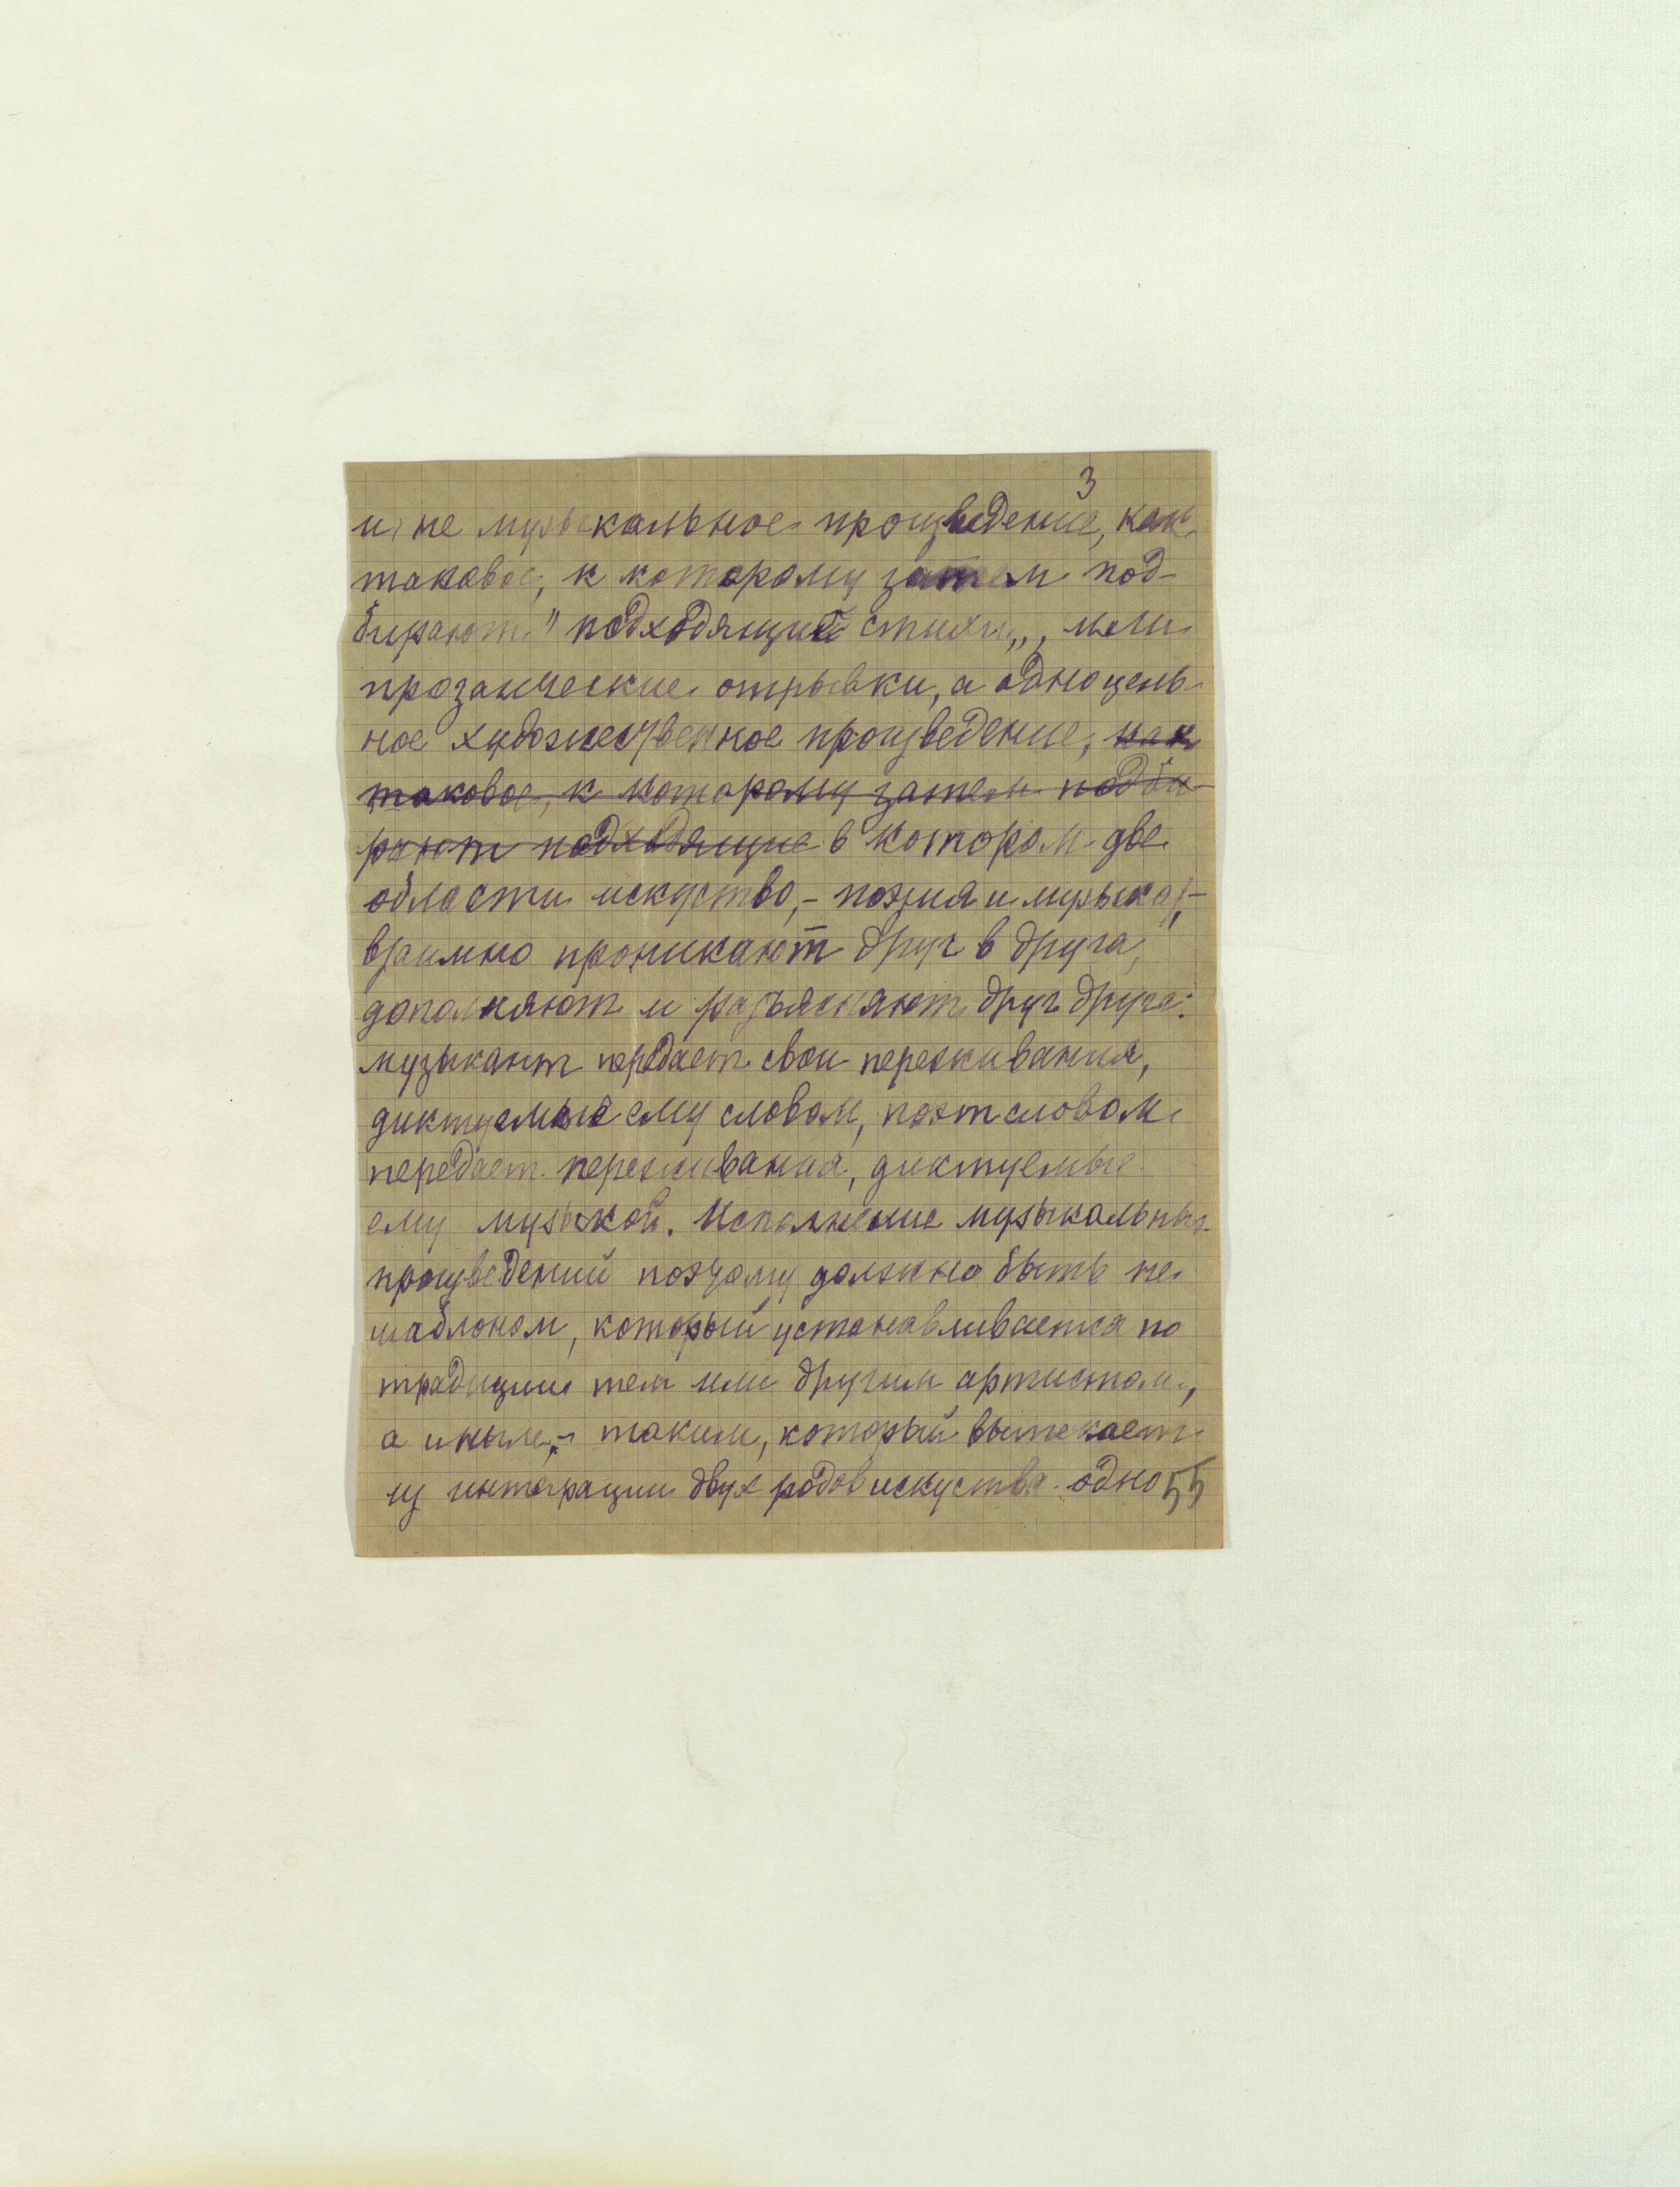 3
и не музыкальное произведение, как
таковое, к которому затем под-
бирают "подходящий стихи„, или
прозаические отрывки, а одно цель-
ное художественное произведение, как
таковое, к которому затем подби-
рают подходящие в котором две
области искуство,- поэзия и музыка,-
взаимно проникают друг в друга,
дополняют и разъясняют друг друга:
музыкант передает свои переживания,
диктуемые ему словом, поэт словом
передает переживания, диктуемые
ему музыкой. Исполнение музыкальных
произведений поэтому должно быть не
шаблоном, который устанавливается по
традиции тем или другим артистом,
а иным,- таким, который вытекает
из интеграции двух родов искуства одно
55